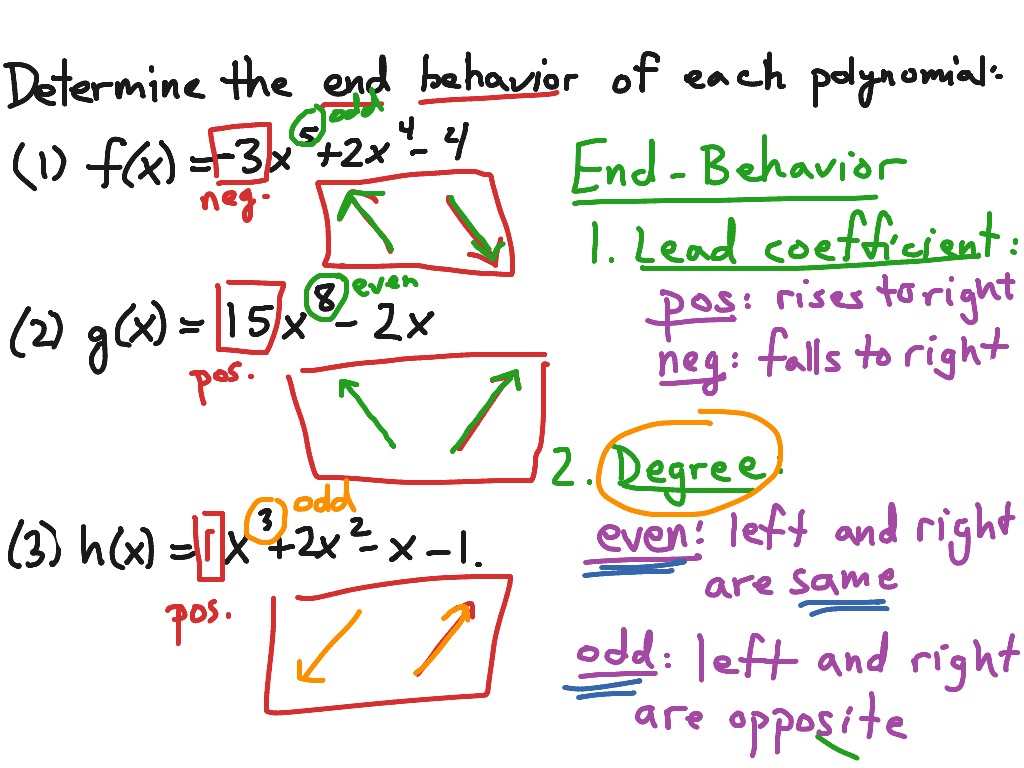 Determine the end behavior of each polynomial:
odd
(1) f(x) = -3x⁵ + 2x⁴ - 4
neg.
even
(2) g(x) = 15x⁸ - 2x
pos.
odd
(3) h(x) = 1x³ + 2x² - x - 1.
pos.
End-Behavior
1. Lead coefficient:
pos: rises to right
neg: falls to right
2. Degree:
even: left and right
are same
odd: left and right
are opposite